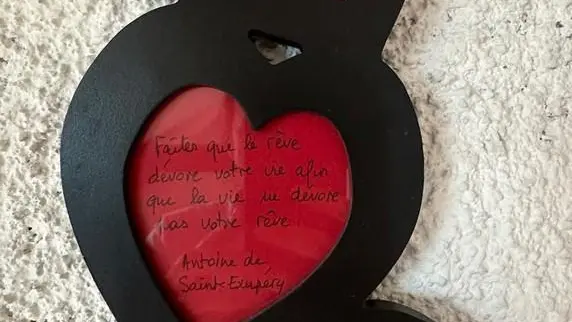 Faites que le rêve
dévore votre vie afin
que la vie ne dévore
pas votre rêve.
Antoine de
Saint-Exupéry